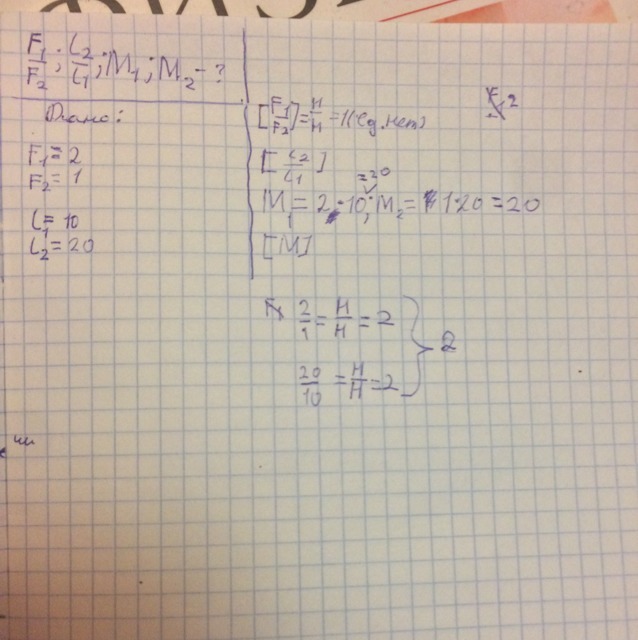 F₁/F₂; L₂/L₁; M₁; M₂ - ?
Дано:
F₁ = 2
F₂ = 1
L₁ = 10
L₂ = 20
[F₁/F₂] = H/H = 1 (ед. нет)
[L₂/L₁]
= 20
M₁ = 2 · 10; M₂ = 1 · 20 = 20
[M]
2/1 = H/H = 2
20/10 = H/H = 2
2